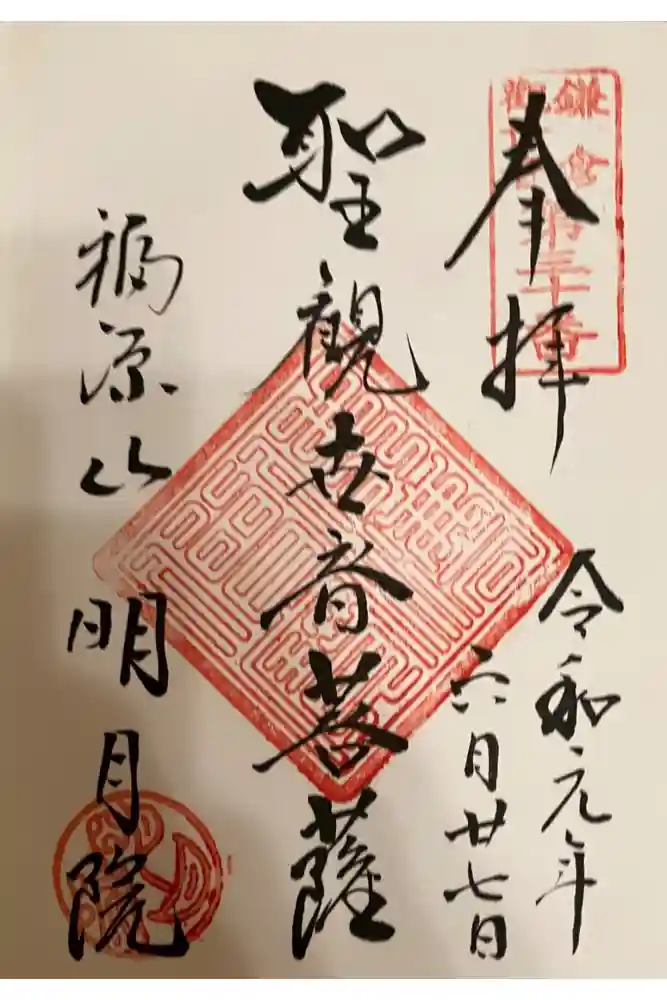 鎌倉
観音第三十番
奉拝
令和元年
六月廿七日
聖観世音菩薩
福源山
明月院